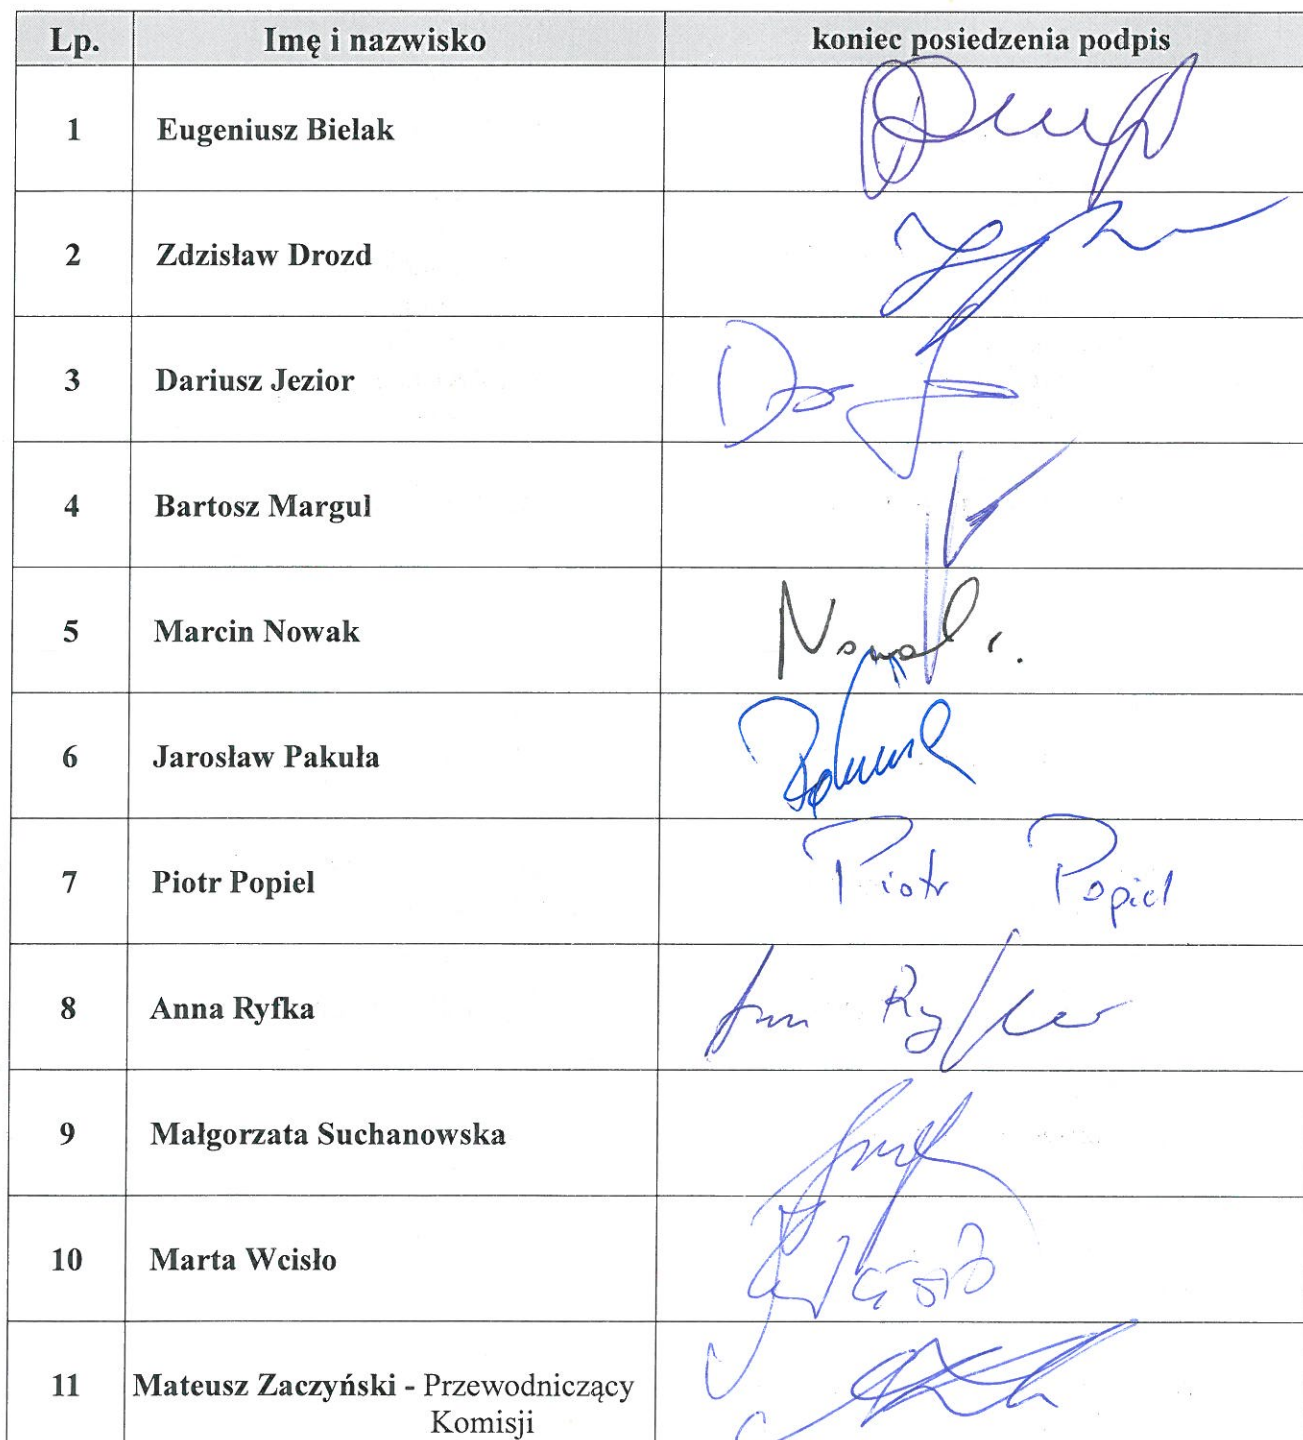 Lp. Imę i nazwisko koniec posiedzenia podpis
1 Eugeniusz Bielak
2 Zdzisław Drozd
3 Dariusz Jezior
4 Bartosz Margul
5 Marcin Nowak Nowak
6 Jarosław Pakuła
7 Piotr Popiel Piotr Popiel
8 Anna Ryfka Ann Ryfka
9 Małgorzata Suchanowska
10 Marta Wcisło Wcisło
11 Mateusz Zaczyński - Przewodniczący
Komisji